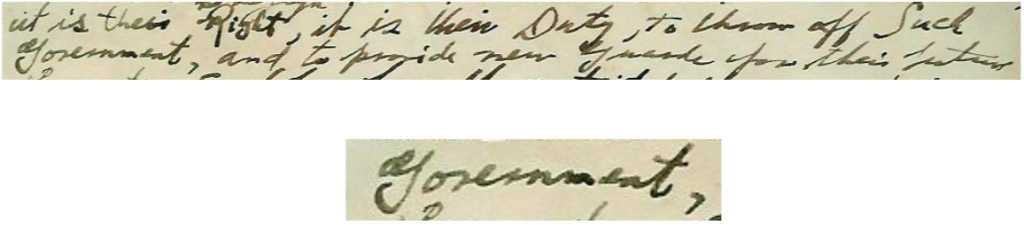 it is their Right, it is their Duty, to throw off Such
Government, and to provide new Guards for their future
Government,